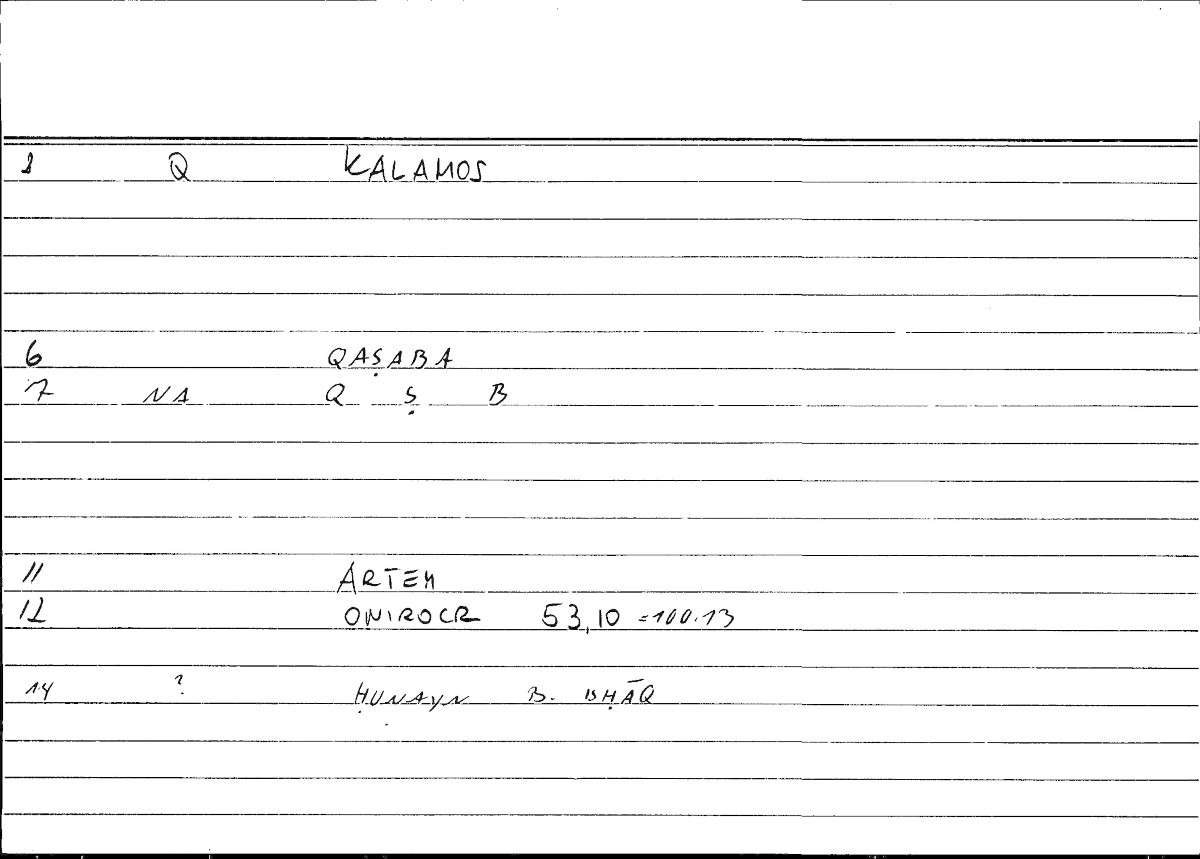 1 Q KALAMOS
6 QAṢABA
7 NA Q Ṣ B
11 ARTEM
12 ONIROCR 53,10 =100.13
14 ? ḤUNAYN B. ISḤĀQ